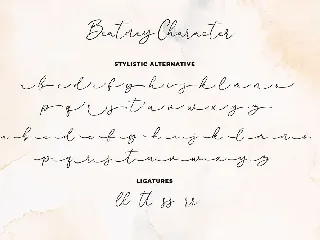 Beatney Character
STYLISTIC ALTERNATIVE
a b c d e f g h i j k l m n o
p q r s t u v w x y z
a b c d e f g h i j k l m n o
p q r s t u v w x y z
LIGATURES
ll tt ss rr